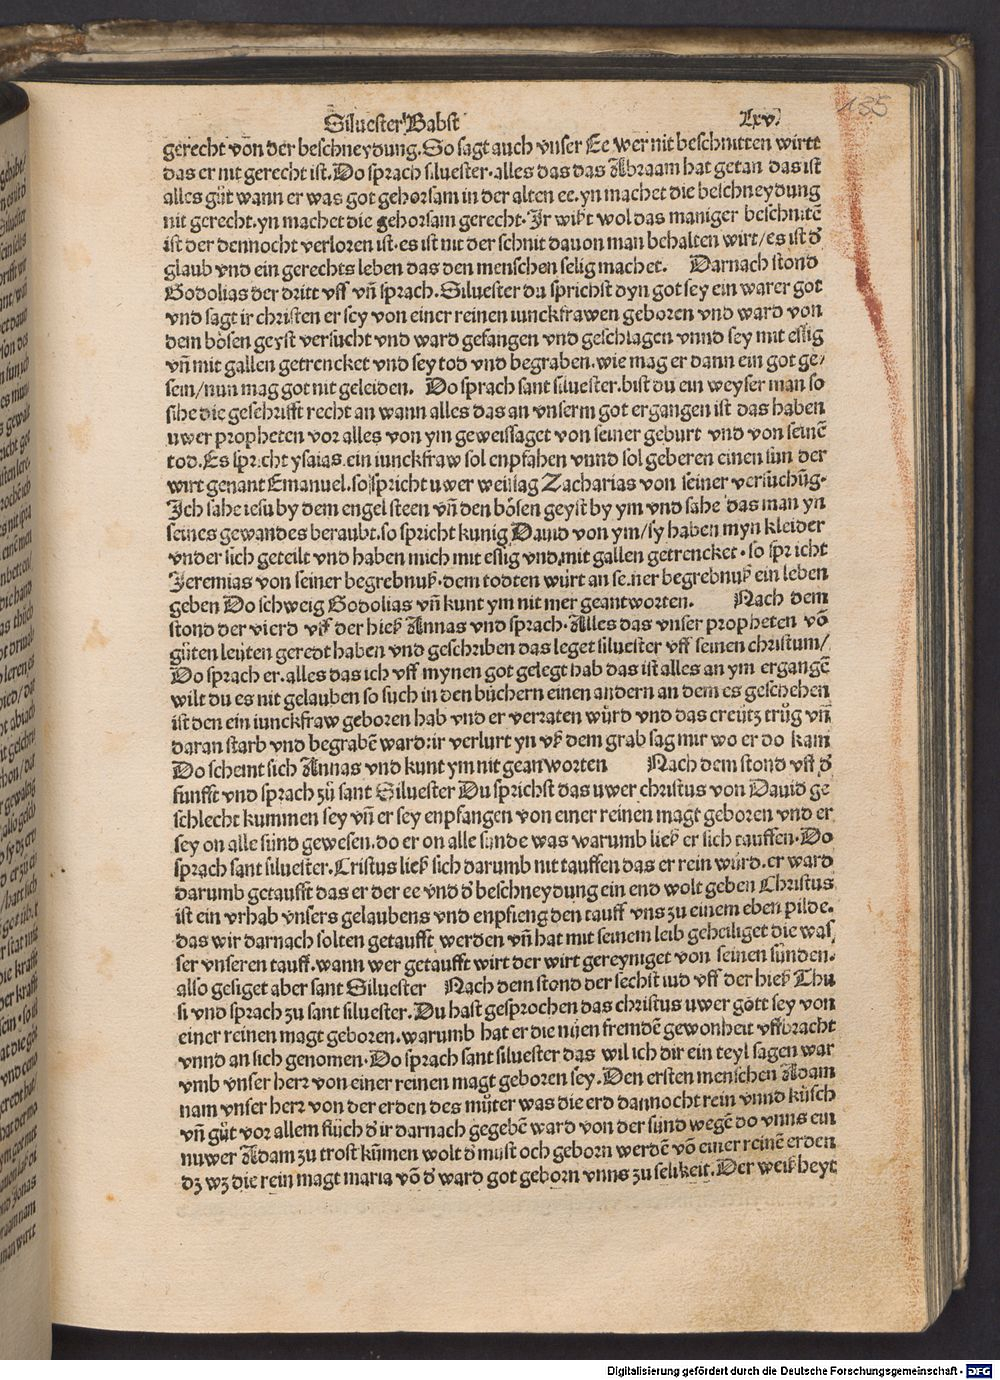 135
Siluester Babst Lxv.
gerecht von der beschneydung. So sagt auch vnser Ee wer nit beschnitten wirtt
das er nit gerecht ist. Do sprach siluester. alles das das Abraam hat getan das ist
alles gůt wann er was got gehorsam in der alten ee. yn machet die beschneydung
nit gerecht. yn machet die gehorsam gerecht. Ir wißt wol das maniger beschnitē
ist der dennocht verloren ist. es ist nit der schnit dauon man behalten wirt / es ist d̄
glaub vnd ein gerechts leben das den menschen selig machet. Darnach stond
Godolias der dritt vff vn̄ sprach. Siluester du sprichst dyn got sey ein warer got
vnd sagt ir christen er sey von einer reinen iunckfrawen geboren vnd ward von
dem bösen geyst versucht vnd ward gefangen vnd geschlagen vnnd sey mit essig
vn̄ mit gallen getrencket vnd sey tod vnd begraben. wie mag er dann ein got ge/
sein / nun mag got nit geleiden. Do sprach sant siluester. bist du ein weyser man so
sihe die geschrifft recht an wann alles das an vnserm got ergangen ist das haben
uwer propheten vor alles von ym geweissaget von seiner geburt vnd von seinē
tod. Es spricht ysaias. ein iunckfraw sol enpfahen vnnd sol geberen einen sun der
wirt genant Emanuel. so spricht uwer weissag Zacharias von seiner versuchūg.
Ich sahe iesu by dem engel steen vn̄ den bösen geyst by ym vnd sahe das man yn
seines gewandes beraubt. so spricht kunig Dauid von ym / sy haben myn kleider
vnder sich geteilt vnd haben mich mit essig vnd mit gallen getrencket. so spricht
Jeremias von seiner begrebnuß. dem todten würt an seiner begrebnuß ein leben
geben Do schweig Godolias vn̄ kunt ym nit mer geantworten. Nach dem
stond der vierd vff der hieß Annas vnd sprach. Alles das vnser propheten vō
gůten leüten geredt haben vnd geschriben das leget siluester vff seinen christum /
Do sprach er. alles das ich vff mynen got gelegt hab das ist alles an ym ergangē
wilt du es nit gelauben so such in den büchern einen andern an dem es geschehen
ist den ein iunckfraw geboren hab vnd er verraten würd vnd das creütz trůg vn̄
daran starb vnd begrabē ward: ir verlurt yn vß dem grab sag mir wo er do kam
Do schemt sich Annas vnd kunt ym nit geanworten Nach dem stond vff d̄
funfft vnd sprach zů sant Siluester Du sprichst das uwer christus von Dauid ge
schlecht kummen sey vn̄ er sey enpfangen von einer reinen magt geboren vnd er
sey on alle sünd gewesen. do er on alle sunde was warumb ließ er sich tauffen. Do
sprach sant siluester. Cristus ließ sich darumb nit tauffen das er rein würd. er ward
darumb getaufft das er der ee vnd d̄ beschneydung ein end wolt geben Christus
ist ein vrhab vnsers gelaubens vnd enpfieng den tauff vns zu einem eben pilde.
das wir darnach solten getaufft werden vn̄ hat mit seinem leib geheiliget die was/
ser vnseren tauff. wann wer getaufft wirt der wirt gereyniget von seinen sünden.
also gesiget aber sant Siluester Nach dem stond der sechst iud vff der hieß Thu
si vnd sprach zu sant siluester. Du hast gesprochen das christus uwer gött sey von
einer reinen magt geboren. warumb hat er die nüen fremdē gewonheit vffbracht
vnnd an sich genomen. Do sprach sant siluester das wil ich dir ein teyl sagen war
vmb vnser herr von einer reinen magt geboren sey. Den ersten menschen Adam
nam vnser herr von der erden des můter was die erd dannocht rein vnnd küsch
vn̄ gůt vor allem flůch d̄ ir darnach gegebē ward von der sund wegē do vnns ein
nuwer Adam zu trost kūmen wolt d̄ must och geborn werdē vō einer reinē erden
dz wz die rein magt maria vō d̄ ward got geborn vnns zu selikeit. Der weißheyt
Digitalisierung gefördert durch die Deutsche Forschungsgemeinschaft - DFG